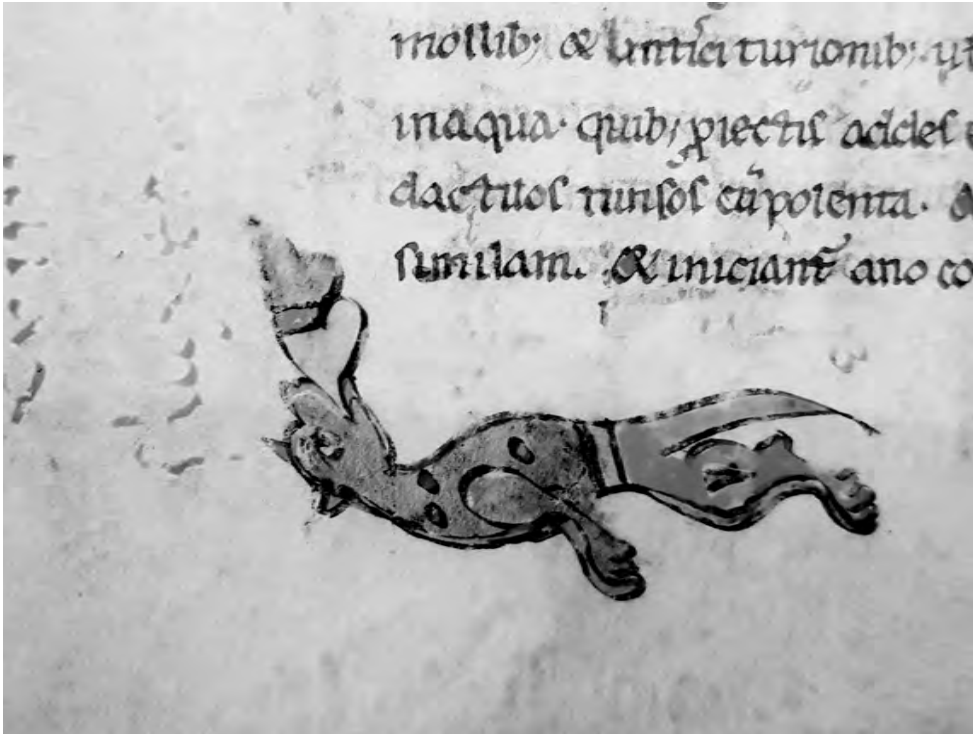 mollib; & lentisci turionib; ut
inaqua. quib; piectis addes
dactilos tunsos cū polenta.
similam. & iniciant ano co